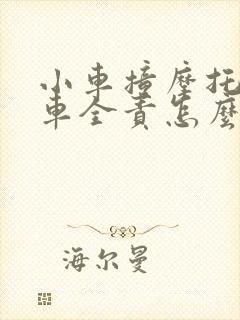 小車撞摩托
車全責怎麼
海尔曼